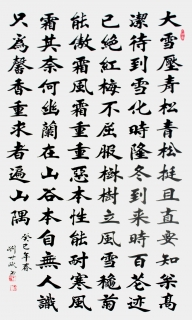 大雪壓青松青松挺且直要知松高
潔待到雪化時隆冬到來時百花迹
已絕紅梅不屈服樹樹立風雪幽蘭
能傲霜風霜重重惡本性能耐寒風
霜其奈何幽蘭在山谷本自無人識
只為馨香重求者遍山隅
於己年春